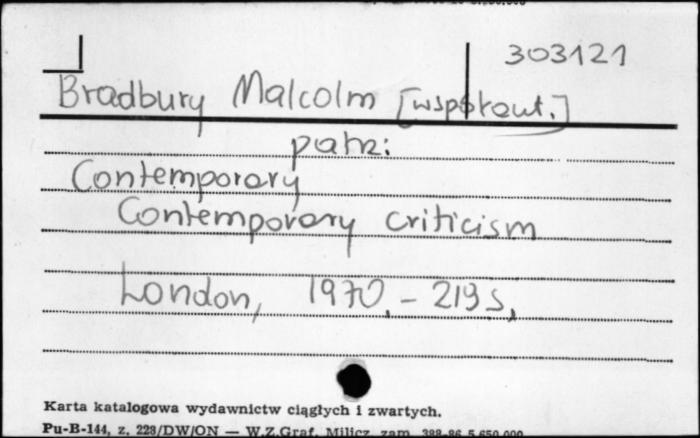 303121
Bradbury Malcolm [współaut.]
patrz:
Contemporary
Contemporary criticism
London, 1970.- 219 s.
Karta katalogowa wydawnictw ciągłych i zwartych.
Pu-B-144, z. 228/DW/ON — W.Z.Graf. Milicz zam. 388-86 5.650.000